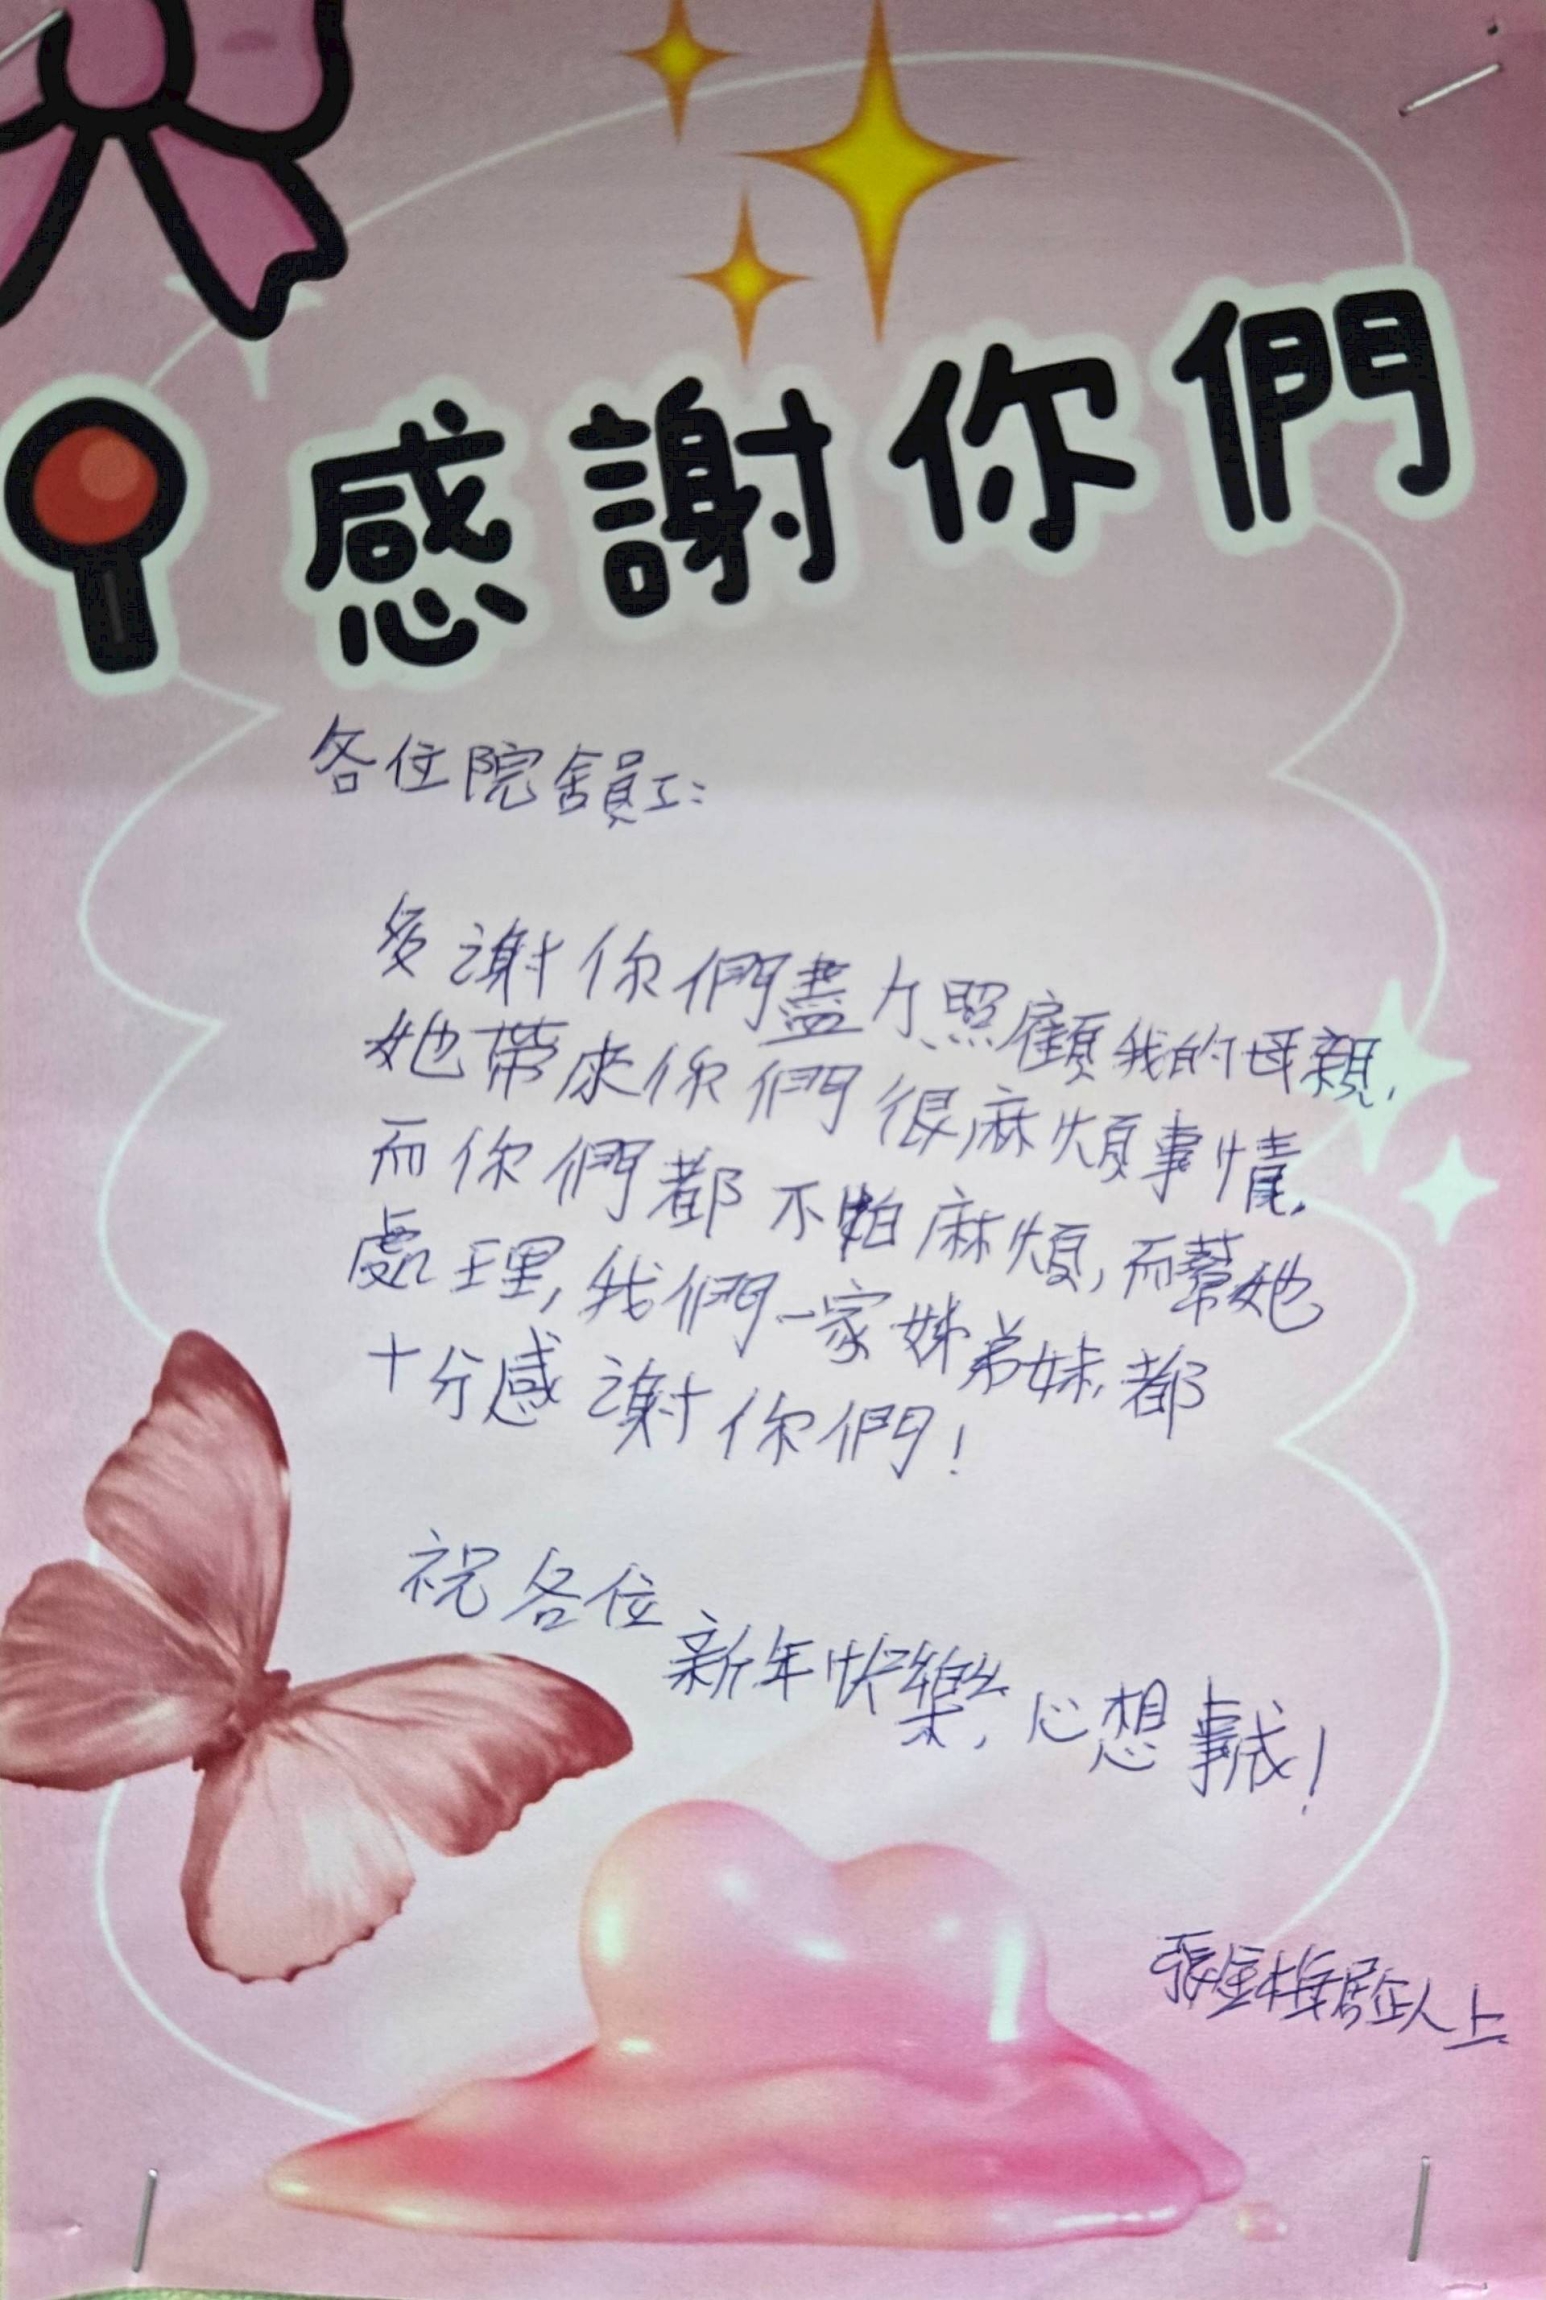 感謝你們
各住院舍員工:
多謝你們盡力照顧我的母親,
她帶來你們很麻煩事情,
而你們都不怕麻煩,而幫她
處理,我們一家姊弟妹,都
十分感謝你們!
祝各位
新年快樂,心想事成!
張金梅居住人上